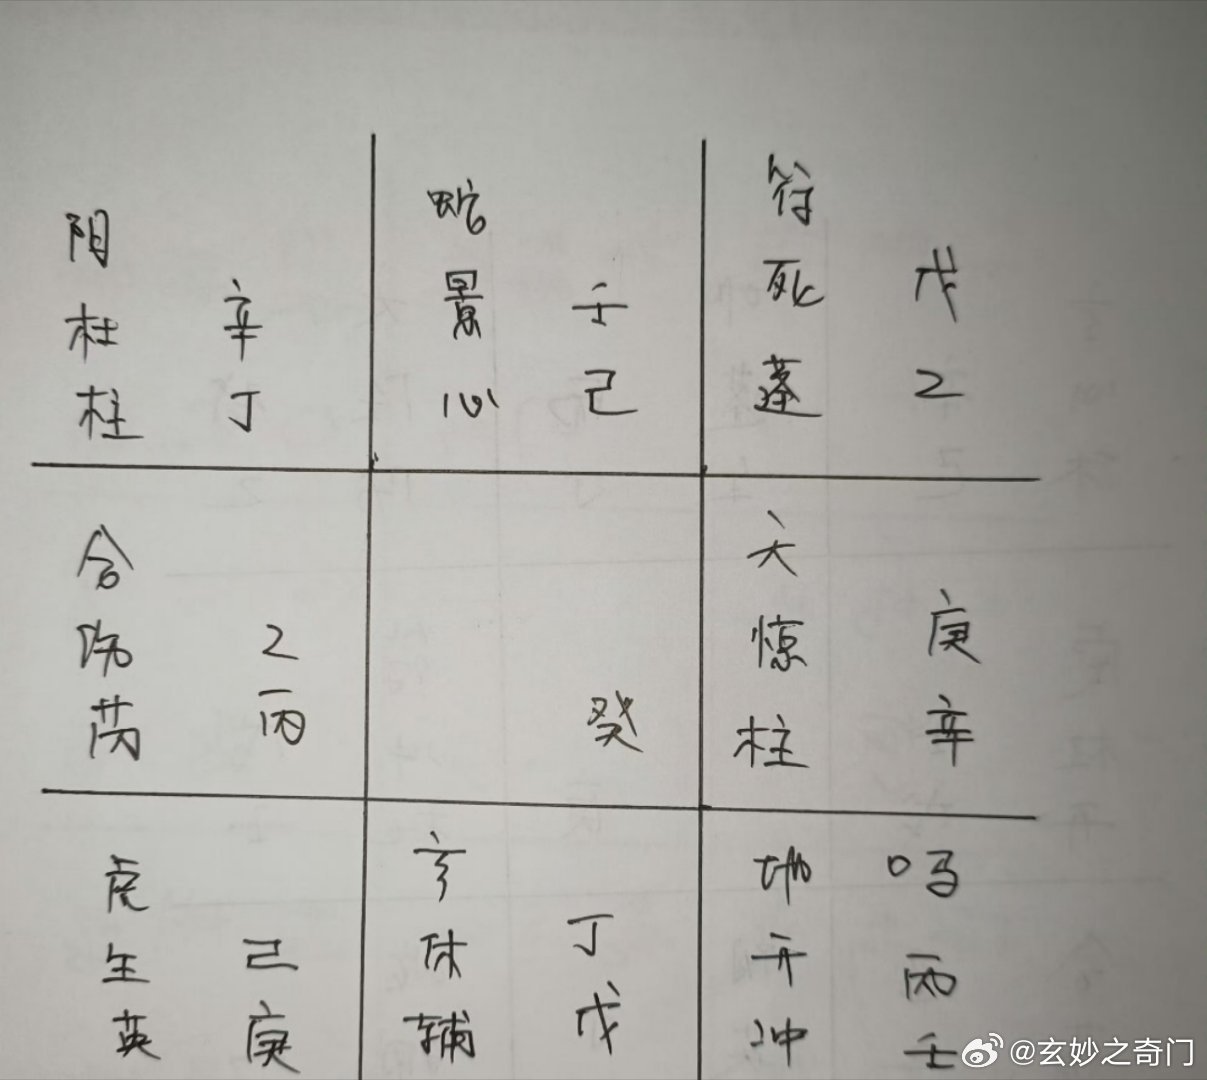 阴
杜 辛
柱 丁
蛇
景 壬
心 己
符
死 戊
蓬 乙
合
伤 乙
芮 丙
癸
天
惊 庚
柱 辛
虎
生 己
英 庚
玄
休 丁
辅 戊
地 〇马
开 丙
冲 壬
@玄妙之奇门